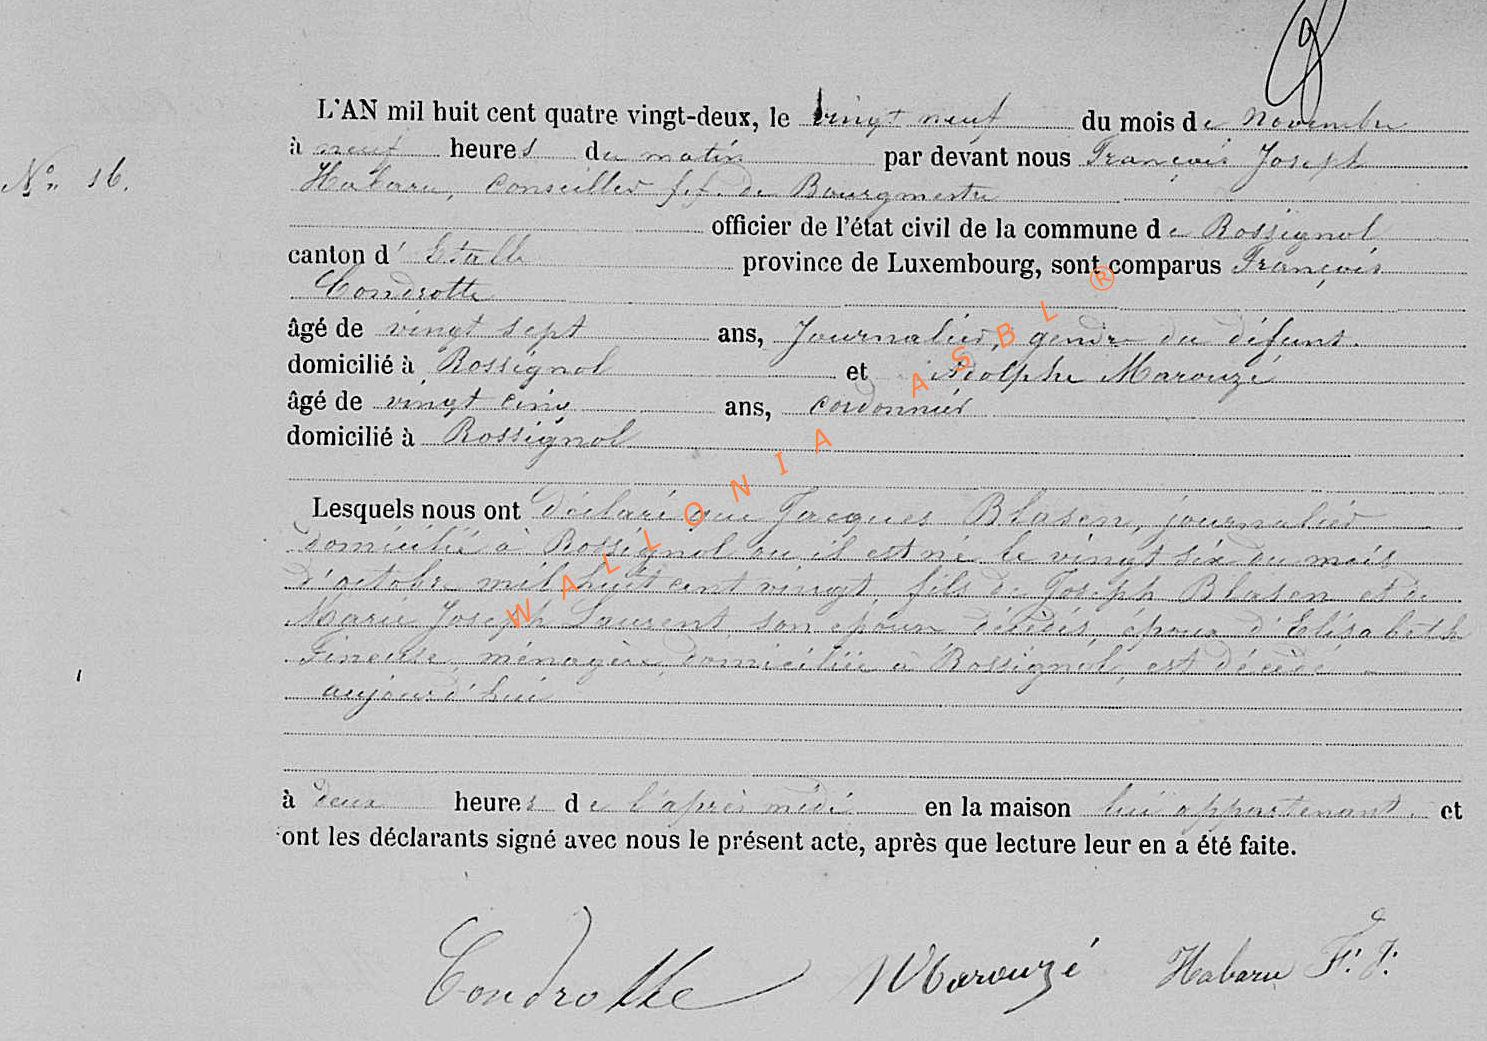 L'AN mil huit cent quatre vingt-deux, le vingt neuf du mois de Novembre
à neuf heures du matin par devant nous François Joseph
N° 16.
Habaru, Conseiller ff. de Bourgmestre
officier de l'état civil de la commune de Rossignol
canton d'Etalle province de Luxembourg, sont comparus François
Condrotte
âgé de vingt sept ans, Journalier, gendre du défunt.
domicilié à Rossignol et Adolphe Marouzé
âgé de vingt cinq ans, cordonnier
domicilié à Rossignol
Lesquels nous ont déclaré que Jacques Blasen, journalier
domicilié à Rossignol où il est né le vingt six du mois
d'octobre mil huit cent vingt, fils de Joseph Blasen et de
Marie Joseph Laurent, son époux décédés, époux d'Elisabeth
ménagère, domiciliée à Rossignol, est décédé
aujourd'hui
à deux heures de l'après midi en la maison lui appartenant. et
ont les déclarants signé avec nous le présent acte, après que lecture leur en a été faite.
Condrotte Marouzé Habaru F. J.
WALLONIA ASBL ®